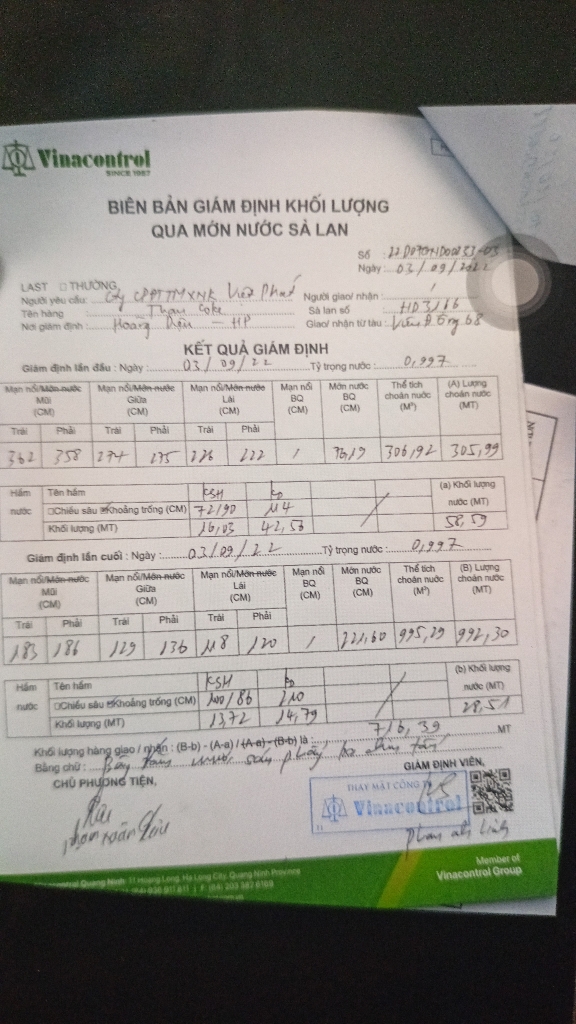 Vinacontrol
SINCE 1957
BIÊN BẢN GIÁM ĐỊNH KHỐI LƯỢNG
QUA MỚN NƯỚC SÀ LAN
Số :
Ngày : 03/09/2022
LAST □ THƯỜNG,
Người yêu cầu: Cty CPPTTMXNK Việt Phát Người giao/ nhận : /
Tên hàng Than Coke Sà lan số HD3166
Nơi giám định : Hoàng Diệu - HP Giao/ nhận từ tàu :
KẾT QUẢ GIÁM ĐỊNH
Giám định lần đầu : Ngày : 03/09/22 Tỷ trọng nước : 0,997
Mạn nổi/Mớn nước Mũi (CM) Mạn nổi/Mớn nước Giữa (CM) Mạn nổi/Mớn nước Lái (CM) Mạn nổi BQ (CM) Mớn nước BQ (CM) Thể tích choán nước (M³) (A) Lượng choán nước (MT)
Trái Phải Trái Phải Trái Phải
362 358 274 275 226 222 / 76,19 306,92 305,99
Hầm nước Tên hầm KSH (a) Khối lượng nước (MT)
□Chiều sâu Khoảng trống (CM) 72/90 114
Khối lượng (MT) 16,03 42,56 58,59
Giám định lần cuối : Ngày : 03/09/22 Tỷ trọng nước : 0,997
Mạn nổi/Mớn nước Mũi (CM) Mạn nổi/Mớn nước Giữa (CM) Mạn nổi/Mớn nước Lái (CM) Mạn nổi BQ (CM) Mớn nước BQ (CM) Thể tích choán nước (M³) (B) Lượng choán nước (MT)
Trái Phải Trái Phải Trái Phải
183 186 129 136 118 120 / 221,60 995,29 992,30
Hầm nước Tên hầm KSH (b) Khối lượng nước (MT)
□Chiều sâu Khoảng trống (CM) 100/86 210
Khối lượng (MT) 13,72 14,79 28,51
Khối lượng hàng giao / nhận : (B-b) - (A-a) / (A-a) - (B-b) là : 716,39 MT
Bằng chữ : Bảy trăm mười sáu phẩy ba chín tấn
CHỦ PHƯƠNG TIỆN, GIÁM ĐỊNH VIÊN,
THAY MẶT CÔNG TY
Vinacontrol
Quang Ninh: 11 Hoang Long, Ha Long City, Quang Ninh Province
Member of
Vinacontrol Group